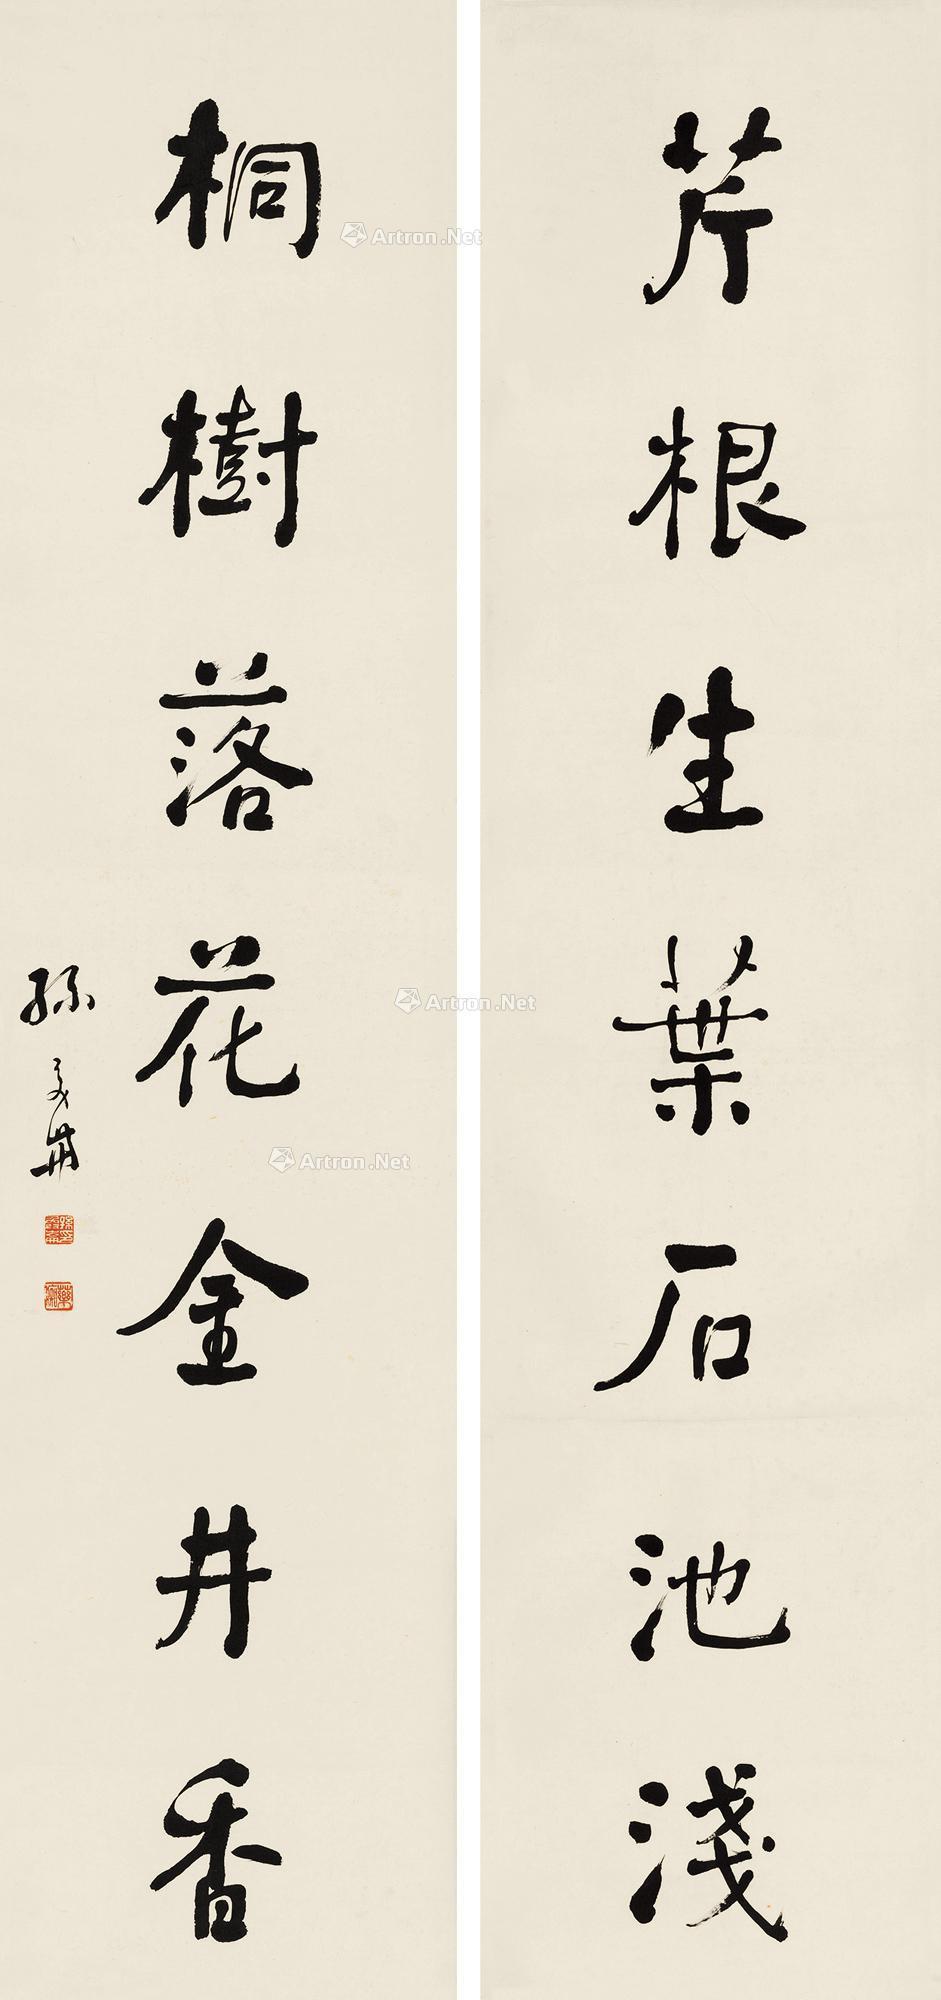 芹根生葉石池淺
桐樹落花金井香
孫奂崙
Artron.Net
Artron.Net
Artron.Net